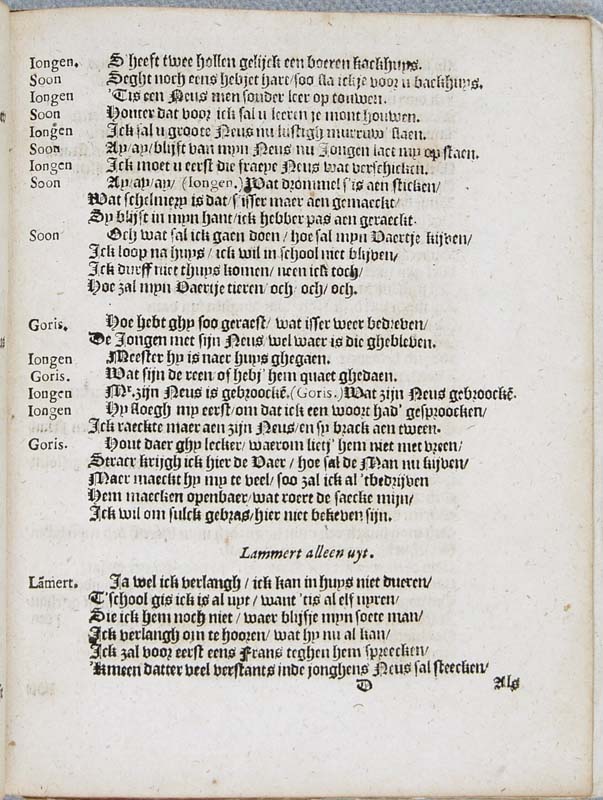 Iongen. S'heeft twee hollen gelijck een boeren kackhuys.
Soon Seght noch eens hebjet hart/soo sla ickje voor u backhuys.
Iongen 'Tis een Neus men sonder leer op touwen.
Soon Houter dat voor ick sal u leeren je mont houwen.
Iongen Ick sal u groote Neus nu lustigh murruw slaen.
Soon Ay/ay/blijft van myn Neus nu Jongen laet my op staen.
Iongen Ick moet u eerst die fraeye Neus wat verschicken.
Soon Ay/ay/ay/ (Iongen.) Wat drommel s'is aen sticken/
Wat schelmery is dat/s'isser maer aen gemaeckt/
Sy blijft in myn hant/ick hebber pas aen geraeckt.
Soon Och wat sal ick gaen doen/hoe sal myn Vaertje kijven/
Ick loop na huys/ick wil in school niet blijven/
Ick durff niet thuys komen/neen ick toch/
Hoe zal myn Vaertje tieren/och/och/och.
Goris. Hoe hebt ghy soo geraest/wat isser weer bedreven/
De Jongen met sijn Neus/wel waer is die ghebleven.
Iongen Meester hy is naer huys ghegaen.
Goris. Wat sijn de reen/of hebj' hem quaet ghedaen.
Iongen Mr. zijn Neus is gebroockē.(Goris.)Wat zijn Neus gebroockē.
Iongen Hy sloegh my eerst/om dat ick een woort had' gesproocken/
Ick raeckte maer aen zijn Neus/en sy brack aen tween.
Goris. Hout daer ghy lecker/waerom lietj' hem niet met vreen/
Stracx krijgh ick hier de Vaer/hoe sal de Man nu kijven/
Maer maeckt hy my te veel/soo zal ick al 'tbedrijven
Hem maecken openbaer/wat roert de saecke mijn/
Ick wil om sulck gebras/hier niet bekeven sijn.
Lammert alleen uyt.
Lāmert. Ja wel ick verlangh/ick kan in huys niet dueren/
T'school gis ick is al uyt/want 'tis al elf uyren/
Sie ick hem noch niet/waer blijfje myn soete man/
Ick verlangh om te hooren/wat hy nu al kan/
Ick zal voor eerst eens Frans teghen hem spreecken/
'Kmeen datter veel verstants inde jonghens Neus sal steecken/
D Als